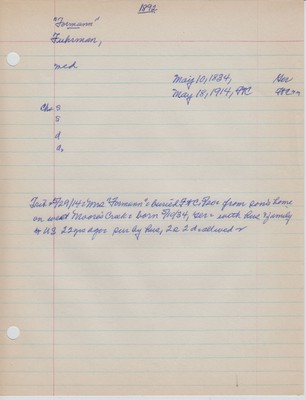 1892
"Formann"
Fuhrman,
med
May 10, 1834, Ger
May 18, 1914, FC
Ch: S
S
d
d.
Trib 5/29/14: Mrs "Formann" buried F+C, Tues from son's home
on west Moores Creek: born 5/10/34, Ger: with Hus & family
to US 22 yrs ago: sur by Hus, 2s 2d allived